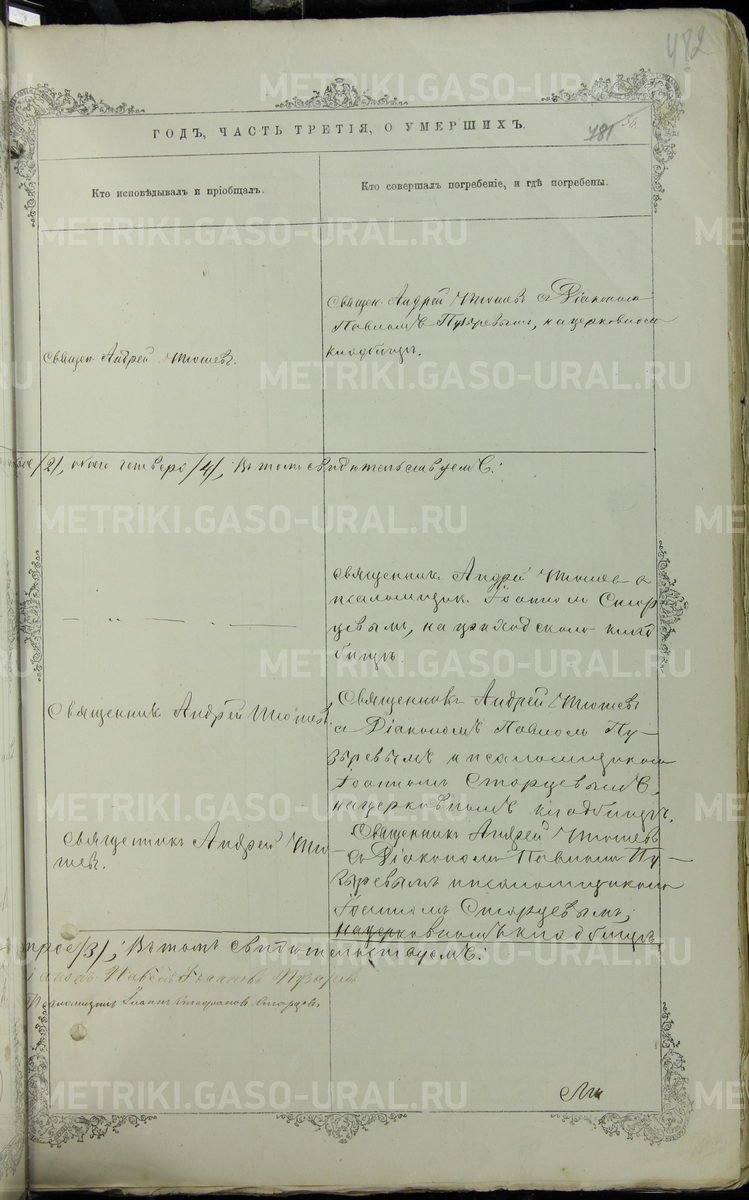 482
ГОДЪ, ЧАСТЬ ТРЕТІЯ, О УМЕРШИХЪ.
481
Кто исповѣдывалъ и пріобщалъ.
Кто совершалъ погребеніе, и гдѣ погребены.
Священ. Андрей Тюшевъ съ Діакономъ
Павломъ Пузыревымъ, на церковномъ
кладбищѣ.
Священ. Андрей Тюшевъ.
/2/, обоего четверо /4/; Въ томъ свидѣтельствуемъ:
Священникъ Андрей Тюшевъ съ
псаломщик. Іоанномъ Старц
цевымъ, на приходскомъ клад
бищѣ.
Священникъ Андрей Тюшевъ.
Священникъ Андрей Тюшевъ
съ Діакономъ Павломъ Пу-
зыревымъ и псаломщикомъ
Іоанномъ Старцевымъ,
на церковномъ кладбищѣ.
Священникъ Андрей Тю-
шевъ.
Священникъ Андрей Тюшевъ
съ Діакономъ Павломъ Пу-
зыревымъ и псаломщикомъ
Іоанномъ Старцевымъ,
на церковномъ кладбищѣ.
трое /3/; Въ томъ свидѣтельствуемъ:
Діаконъ Павелъ Іоанновъ Пузыревъ
Псаломщикъ Іоаннъ Стефановъ Старцевъ
METRIKI.GASO-URAL.RU